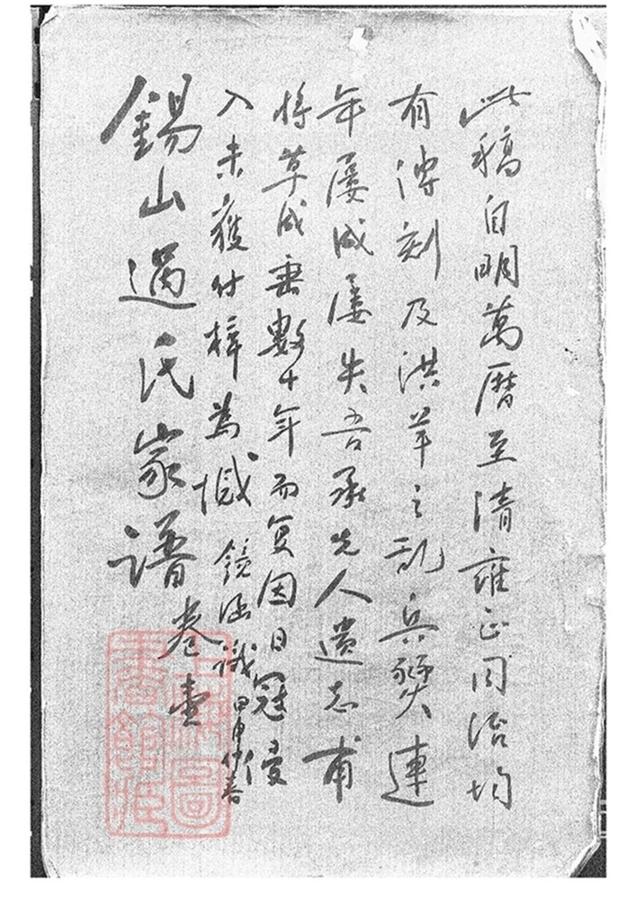 此稿自明萬曆至清雍正同治均
有傳刻及洪羊之亂兵燹連
年屢成屢失吾承先人遺志甫
將草成垂數十年而复因日寇侵
入未獲付梓為憾 鏡涵識 甲申仲春
錫山過氏家譜 卷壹
上海圖書館藏